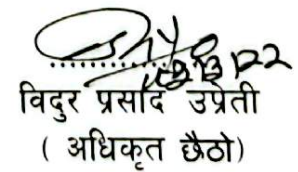 विदुर प्रसाद उप्रेती
( अधिकृत छैठो)